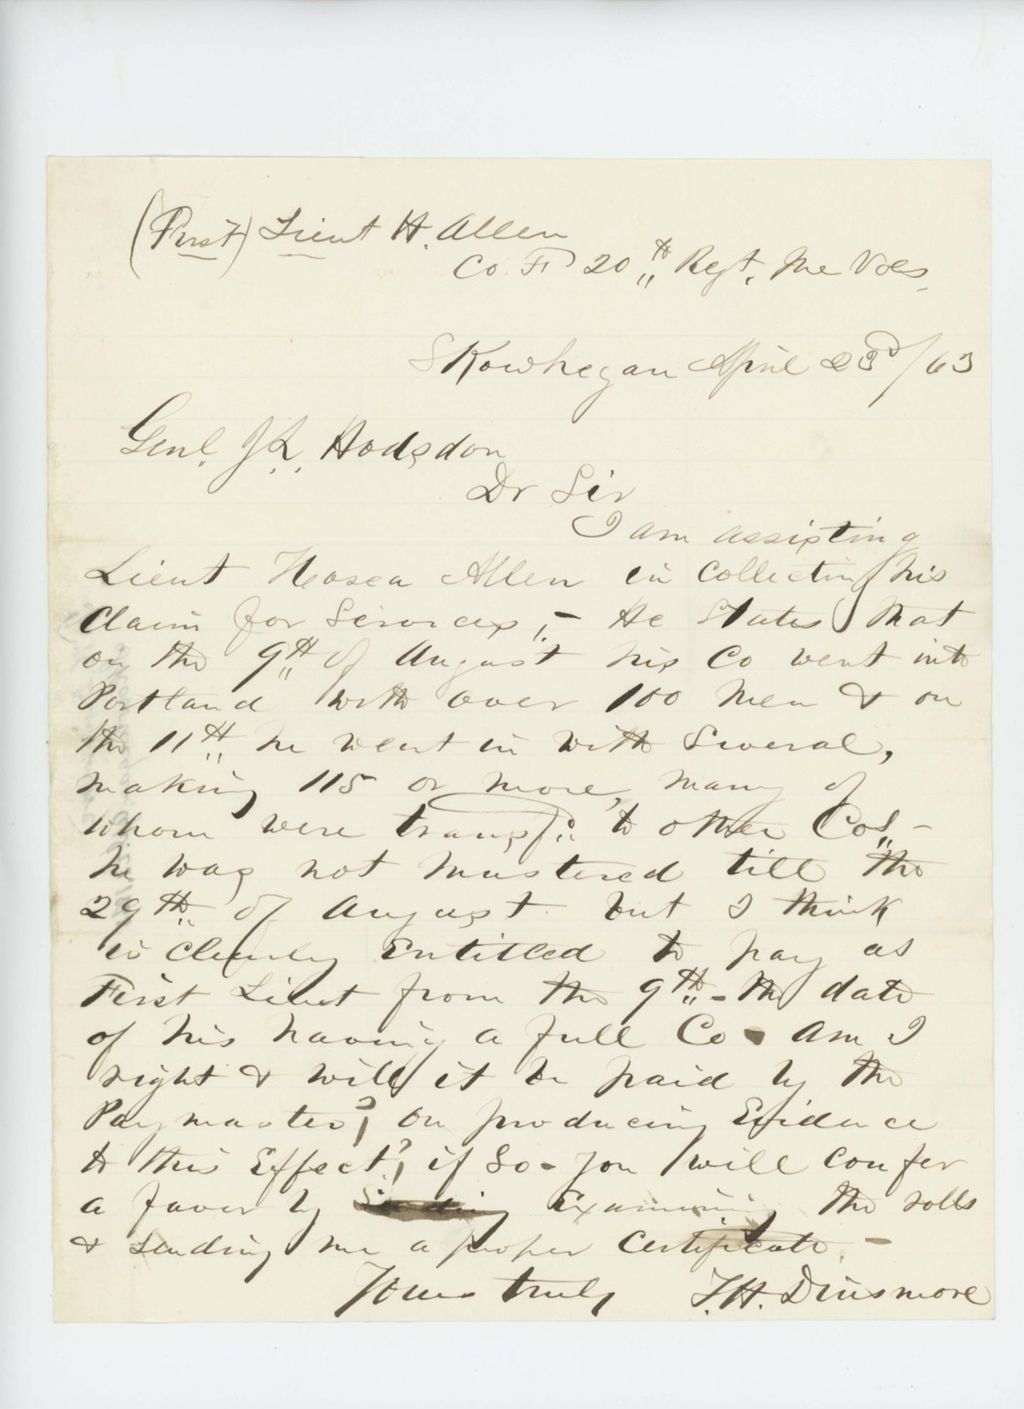 (First) Lieut H. Allen
Co. F 20th Regt. Me Vols.
Skowhegan April 23d/63
Genl. J L. Hodsdon
Dr Sir
I am assisting
Lieut Hosea Allen in collecting his
Claim for Services,- He States that
on the 9th of August his Co went into
Portland with over 100 men & on
the 11th he went in with Several,
making 115 or more, many of
whom were transfd to other Cos,-
he was not mustered till the
29th of August but I think
is clearly Entitled to pay as
First Lieut from the 9th - the date
of his having a full Co - Am I
right & will it be paid by the
Paymaster? on producing Evidence
to this Effect?, if So - you will confer
a favor by Sending Examining the rolls
& sending me a proper Certificate. -
Yours truly F.H. Dinsmore